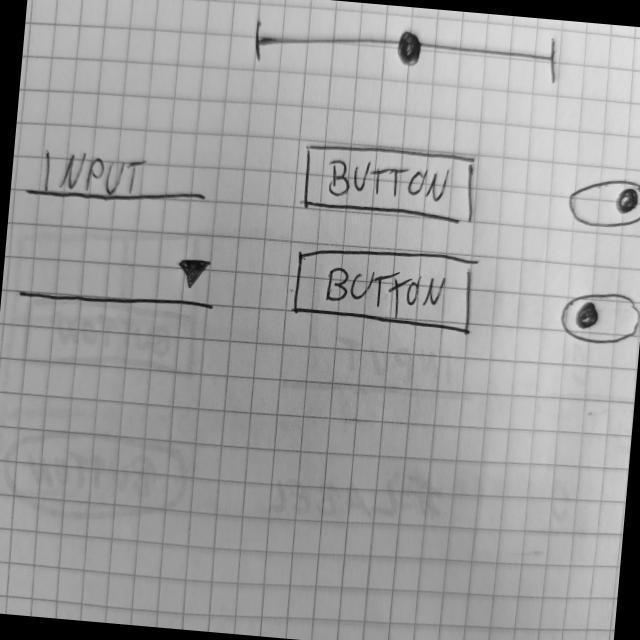 INPUT BUTTON
BUTTON